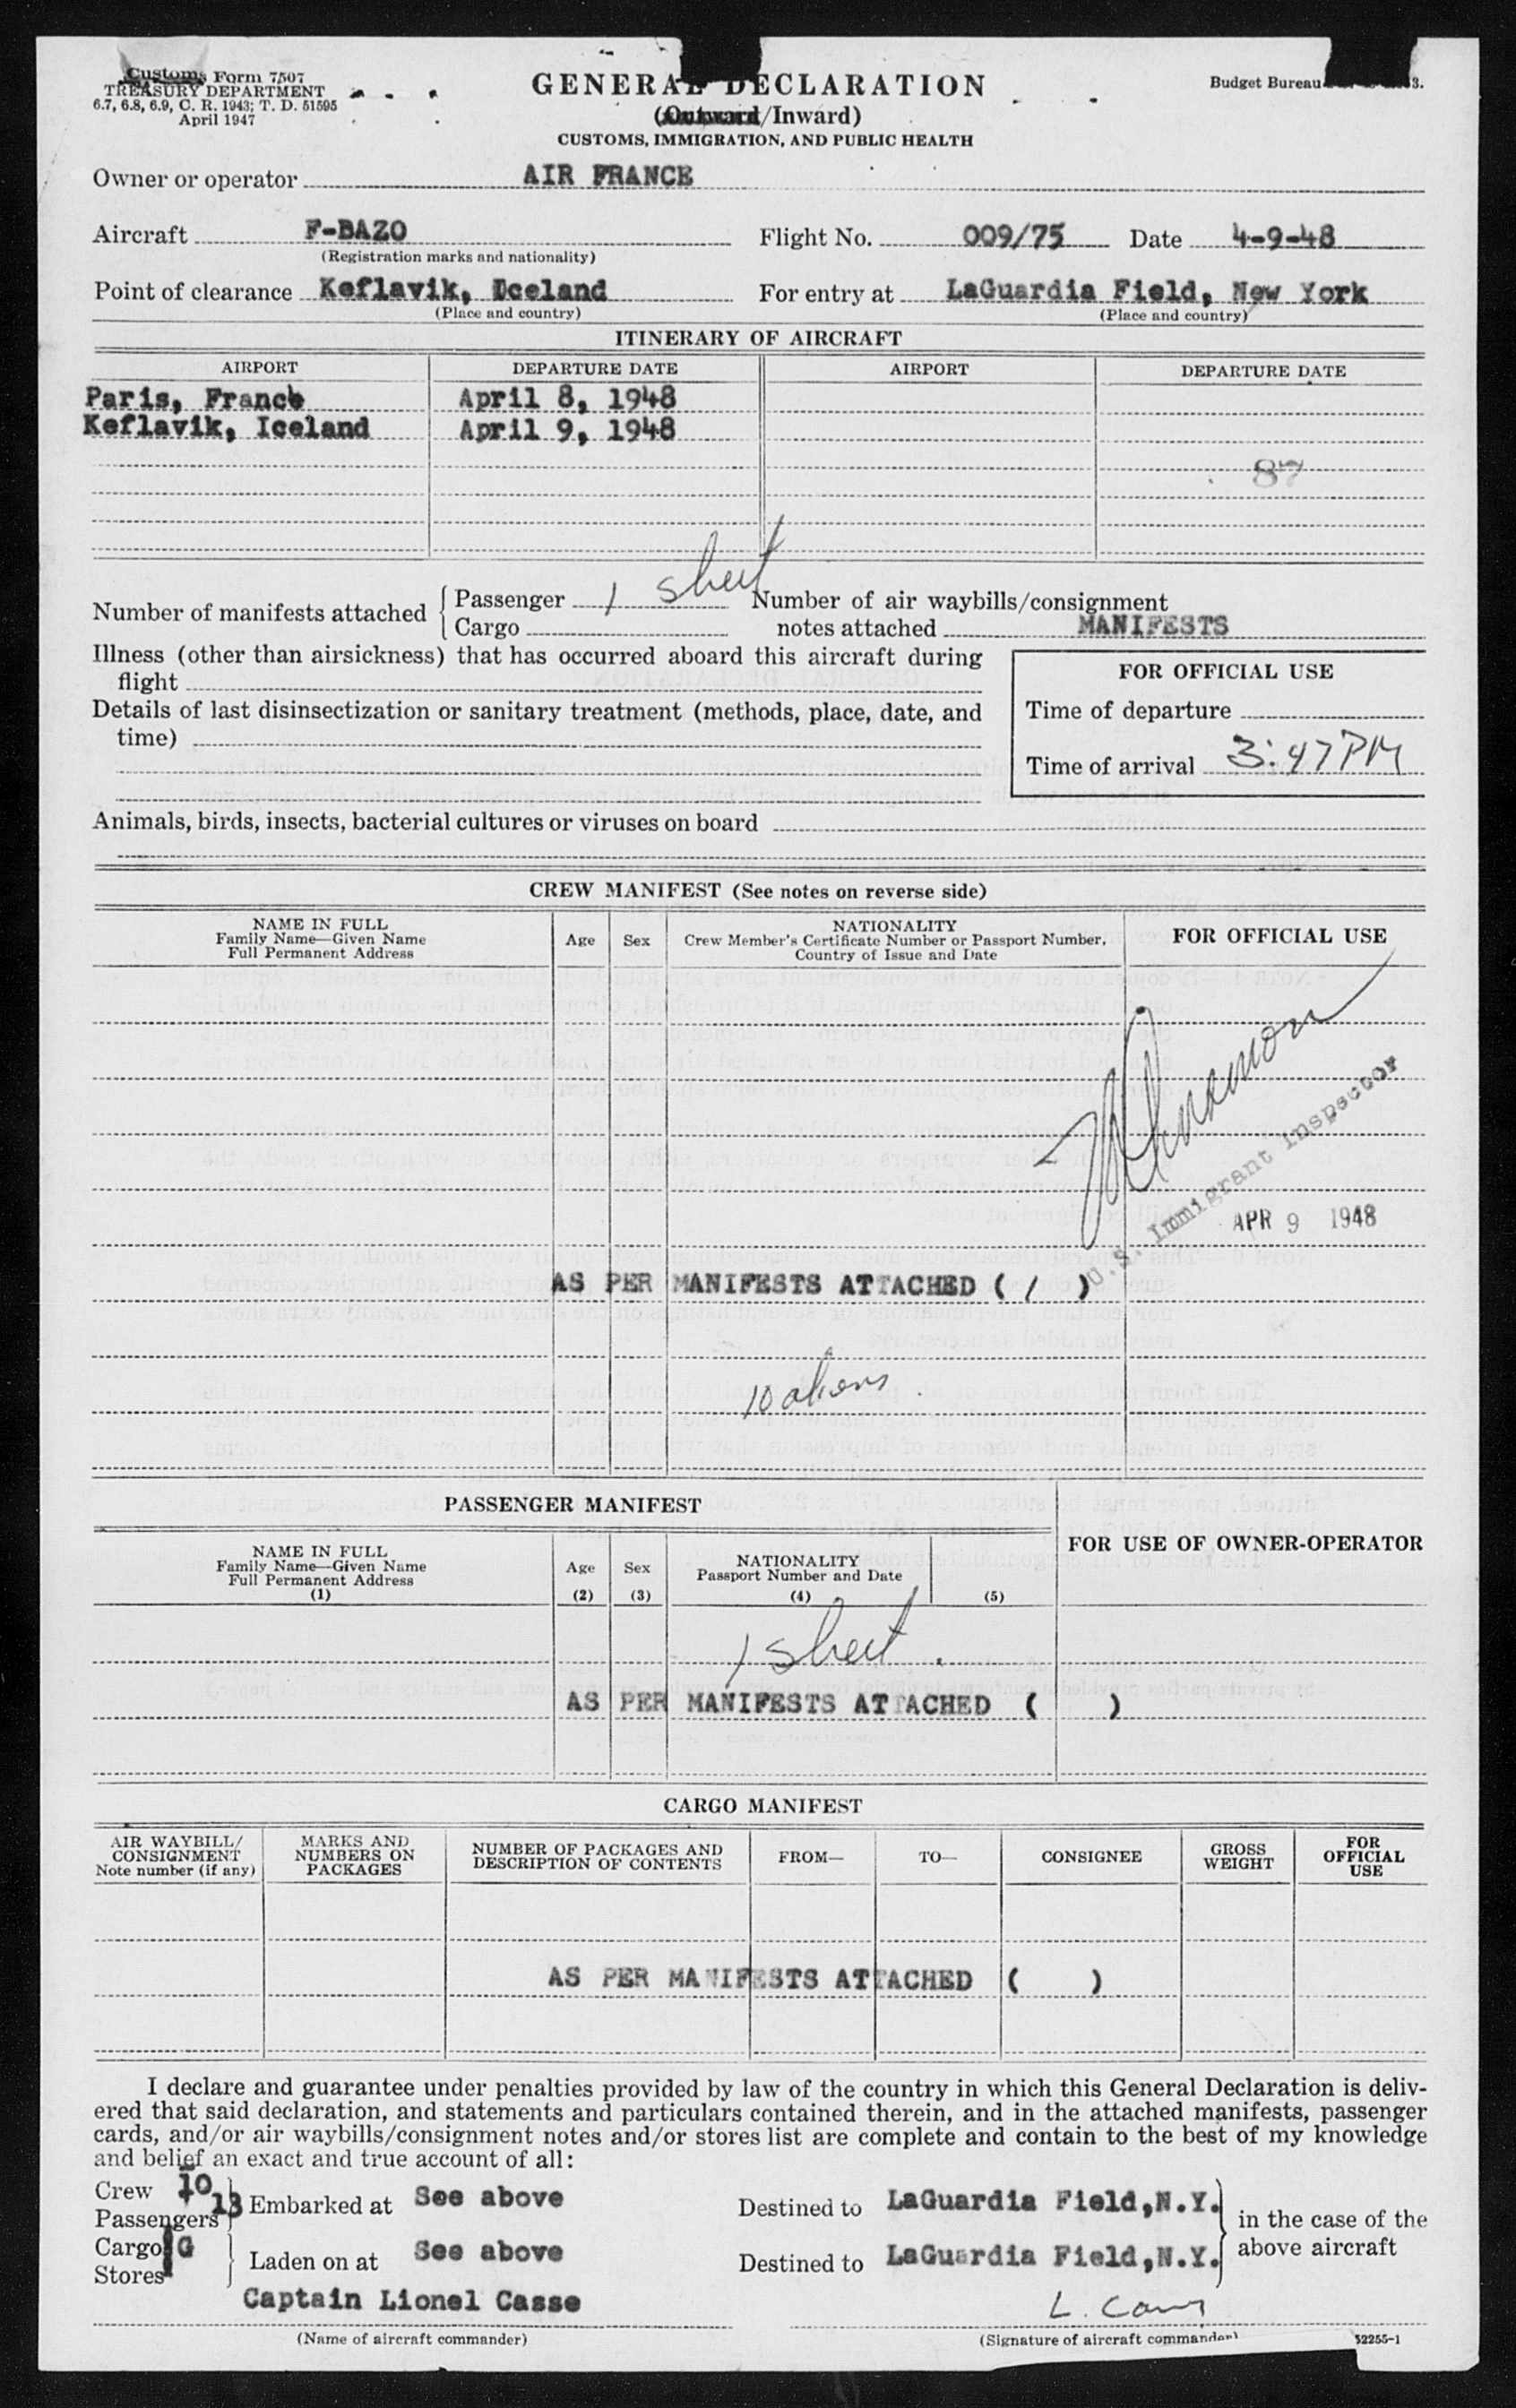 Customs Form 7507
TREASURY DEPARTMENT
6.7, 6.8, 6.9, C. R. 1943; T. D. 51595
April 1947
GENERAL DECLARATION
(Outward/Inward)
CUSTOMS, IMMIGRATION, AND PUBLIC HEALTH
Budget Bureau 3.
Owner or operator AIR FRANCE
Aircraft F-BAZO Flight No. 009/75 Date 4-9-48
(Registration marks and nationality)
Point of clearance Keflavik, Dceland For entry at LaGuardia Field, New York
(Place and country) (Place and country)
ITINERARY OF AIRCRAFT
AIRPORT DEPARTURE DATE AIRPORT DEPARTURE DATE
Paris, France April 8, 1948
Keflavik, Iceland April 9, 1948
87
Number of manifests attached
Passenger 1 sheet
Cargo
Number of air waybills/consignment
notes attached MANIFESTS
Illness (other than airsickness) that has occurred aboard this aircraft during
flight
Details of last disinsectization or sanitary treatment (methods, place, date, and
time)
FOR OFFICIAL USE
Time of departure
Time of arrival 3:47 PM
Animals, birds, insects, bacterial cultures or viruses on board
CREW MANIFEST (See notes on reverse side)
NAME IN FULL
Family Name—Given Name
Full Permanent Address
Age
Sex
NATIONALITY
Crew Member's Certificate Number or Passport Number,
Country of Issue and Date
FOR OFFICIAL USE
U.S. Immigrant Inspector
APR 9 1948
AS PER MANIFESTS ATTACHED ( / )
10 aliens
PASSENGER MANIFEST
FOR USE OF OWNER-OPERATOR
NAME IN FULL
Family Name—Given Name
Full Permanent Address
(1)
Age
(2)
Sex
(3)
NATIONALITY
Passport Number and Date
(4)
(5)
1 sheet.
AS PER MANIFESTS ATTACHED ( )
CARGO MANIFEST
AIR WAYBILL/
CONSIGNMENT
Note number (if any)
MARKS AND
NUMBERS ON
PACKAGES
NUMBER OF PACKAGES AND
DESCRIPTION OF CONTENTS
FROM—
TO—
CONSIGNEE
GROSS
WEIGHT
FOR
OFFICIAL
USE
AS PER MANIFESTS ATTACHED ( )
I declare and guarantee under penalties provided by law of the country in which this General Declaration is deliv-
ered that said declaration, and statements and particulars contained therein, and in the attached manifests, passenger
cards, and/or air waybills/consignment notes and/or stores list are complete and contain to the best of my knowledge
and belief an exact and true account of all:
Crew 10
Passengers 13
Embarked at See above
Destined to LaGuardia Field,N.Y.
in the case of the
above aircraft
Cargo G
Stores
Laden on at See above
Destined to LaGuardia Field,N.Y.
Captain Lionel Casse
L. Cass
(Name of aircraft commander)
(Signature of aircraft commander)
52255-1